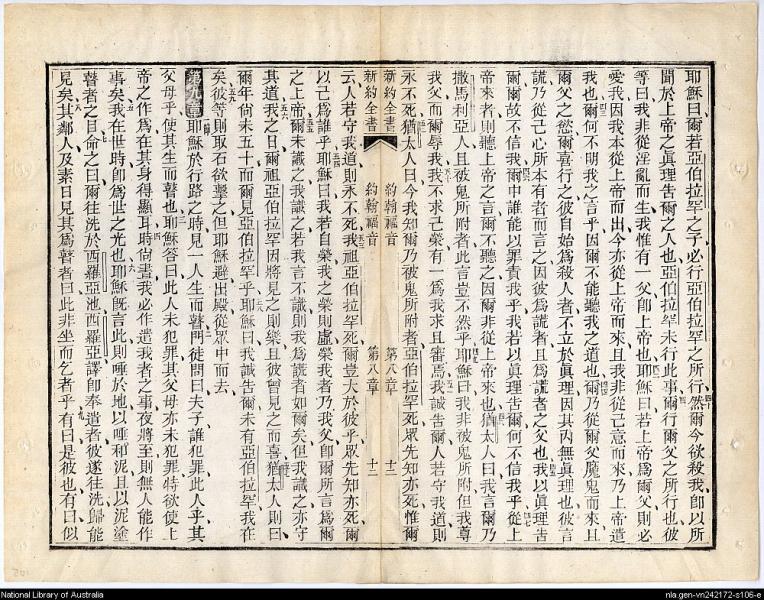 耶穌曰爾若亞伯拉罕之子必行亞伯拉罕之所行然爾今欲殺我卽以所
聞於上帝之眞理告爾之人也亞伯拉罕未行此事爾行爾父之所行也彼
等曰我非從淫亂而生我惟有一父卽上帝也耶穌曰若上帝爲爾父則必
愛我因我本從上帝而出今亦從上帝而來且我非從己意而來乃上帝遣
我也爾何不明我之言乎因爾不能聽我之道也爾乃從爾父魔鬼而來且
爾父之慾爾喜行之彼自始爲殺人者不立於眞理因其內無眞理也彼言
謊乃從己心所本有者而言之因彼爲謊者且爲謊者之父也我以眞理告
爾爾故不信我爾中誰能以罪責我乎我若以眞理告爾何不信我乎從上
帝來者則聽上帝之言爾不聽之因爾非從上帝來也猶太人曰我言爾乃
撒馬利亞人且被鬼所附者此言豈不然乎耶穌曰我非被鬼所附但我尊
我父而爾辱我我不求己榮有一爲我求且審焉我誠告爾人若守我道則
永不死猶太人曰今我知爾乃被鬼所附者亞伯拉罕死眾先知亦死惟爾
新約全書 約翰福音 第八章 十二
新約全書 約翰福音 第八章 十二
云人若守我道則永不死我祖亞伯拉罕死爾豈大於彼乎眾先知亦死爾
以己爲誰乎耶穌曰我若自榮我之榮則虛榮我者乃我父卽爾所言爲爾
之上帝爾未識之我識之若我言不識則我爲謊者如爾矣但我識之亦守
其道我之日爾祖亞伯拉罕因將見之則樂且彼曾見之而喜猶太人則曰
爾年尙未五十而爾見亞伯拉罕乎耶穌曰我誠告爾未有亞伯拉罕我在
矣彼等則取石欲擊之但耶穌避出殿從眾中而去
第九章耶穌於行路之時見一人生而瞽門徒問曰夫子誰犯罪此人乎其
父母乎使其生而瞽也耶穌答曰此人未犯罪其父母亦未犯罪特欲使上
帝之作爲在其身得顯耳時尙晝我必作遣我者之事夜將至則無人能作
事矣我在世時卽爲世之光也耶穌旣言此則唾於地以唾和泥且以泥塗
瞽者之目命之曰爾往洗於西羅亞池西羅亞譯卽奉遣者彼遂往洗歸能
見矣其鄰人及素日見其爲瞽者曰此非坐而乞者乎有曰是彼也有曰似
National Library of Australia
nla.gen-vn242172-s106-e